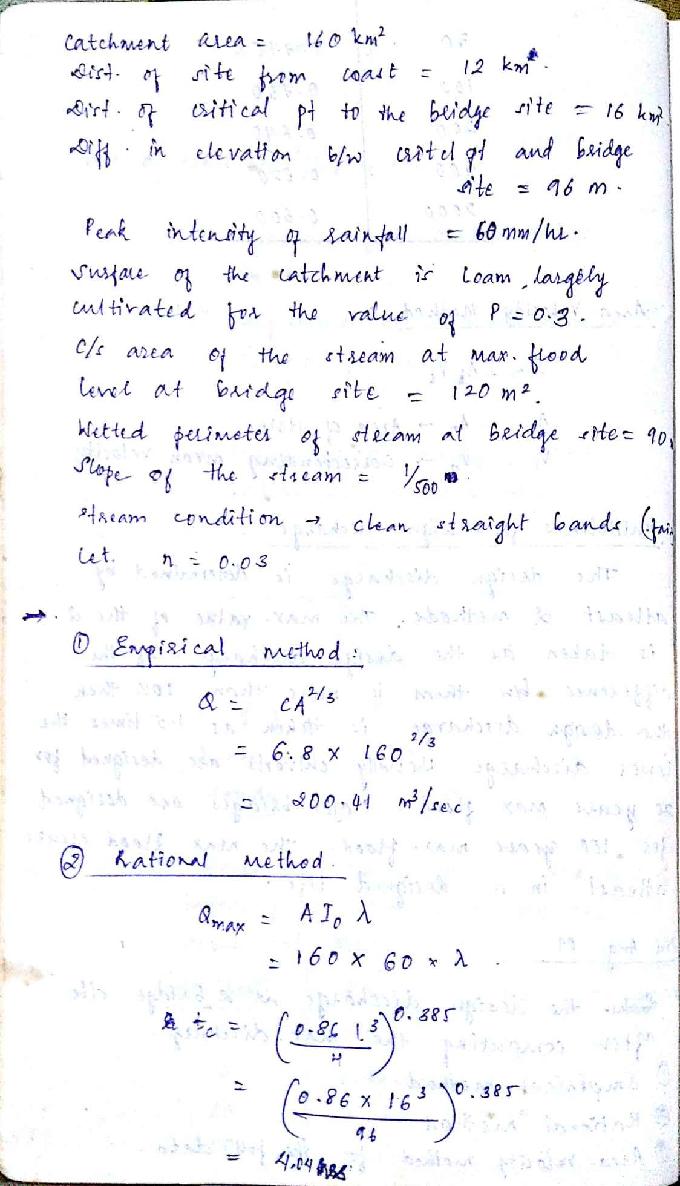 Catchment area = 160 km²
Dist. of site from coast = 12 km.
Dist. of critical pt to the bridge site = 16 km
Diff. in elevation b/w critcl pt and bridge
site = 96 m.
Peak intensity of rainfall = 60 mm/hr.
Surface of the catchment is loam, largely
cultivated for the value of P = 0.3.
C/s area of the stream at max. flood
level at bridge site = 120 m².
Wetted perimeter of stream at bridge site = 90
Slope of the stream = 1/500
stream condition → clean straight bands (fair
Let. n = 0.03
→.
① Empirical method :
Q = CA^2/3
= 6.8 x 160^2/3
= 200.41 m³/sec
② Rational method.
Qmax = A I₀ λ
= 160 x 60 x λ .
tc = (0.86 L³ / H)^0.385
= (0.86 x 16³ / 96)^0.385
= 4.04 hrs.